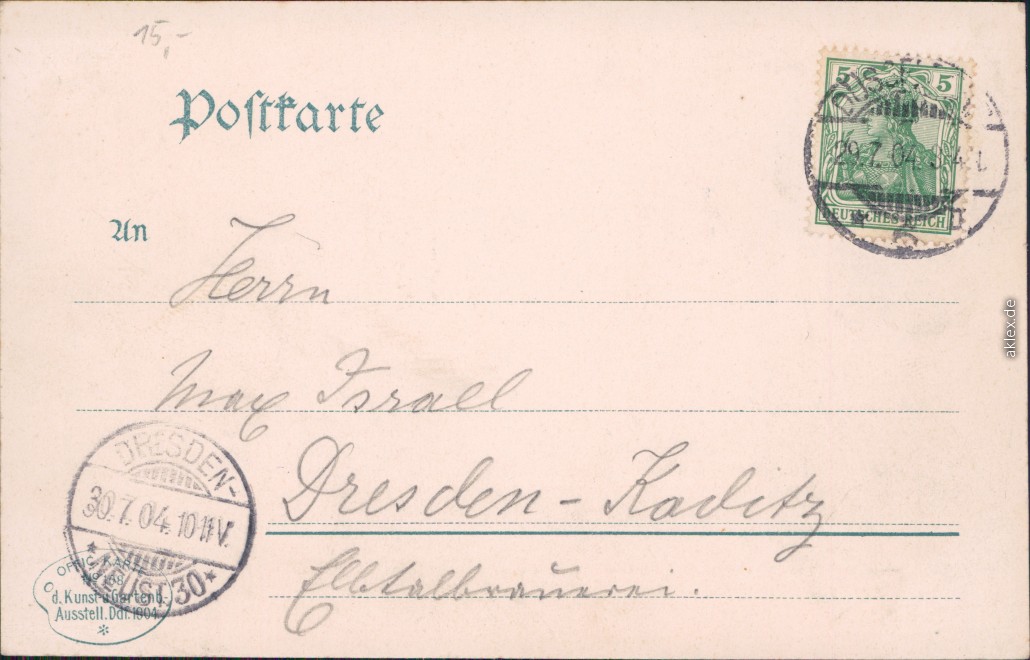 15,-
Postkarte
5 5
DEUTSCHES REICH
29.7.04.
An
Herrn
Max Israel
Dresden-Kaditz
Elbtalbrauerei.
DRESDEN-
30.7.04. 10-11V.
* NEUST. 30 *
OFFIC. KARTE
No 168
d. Kunst u. Gartenb.-
Ausstell. Ddf. 1904
*
aklex.de